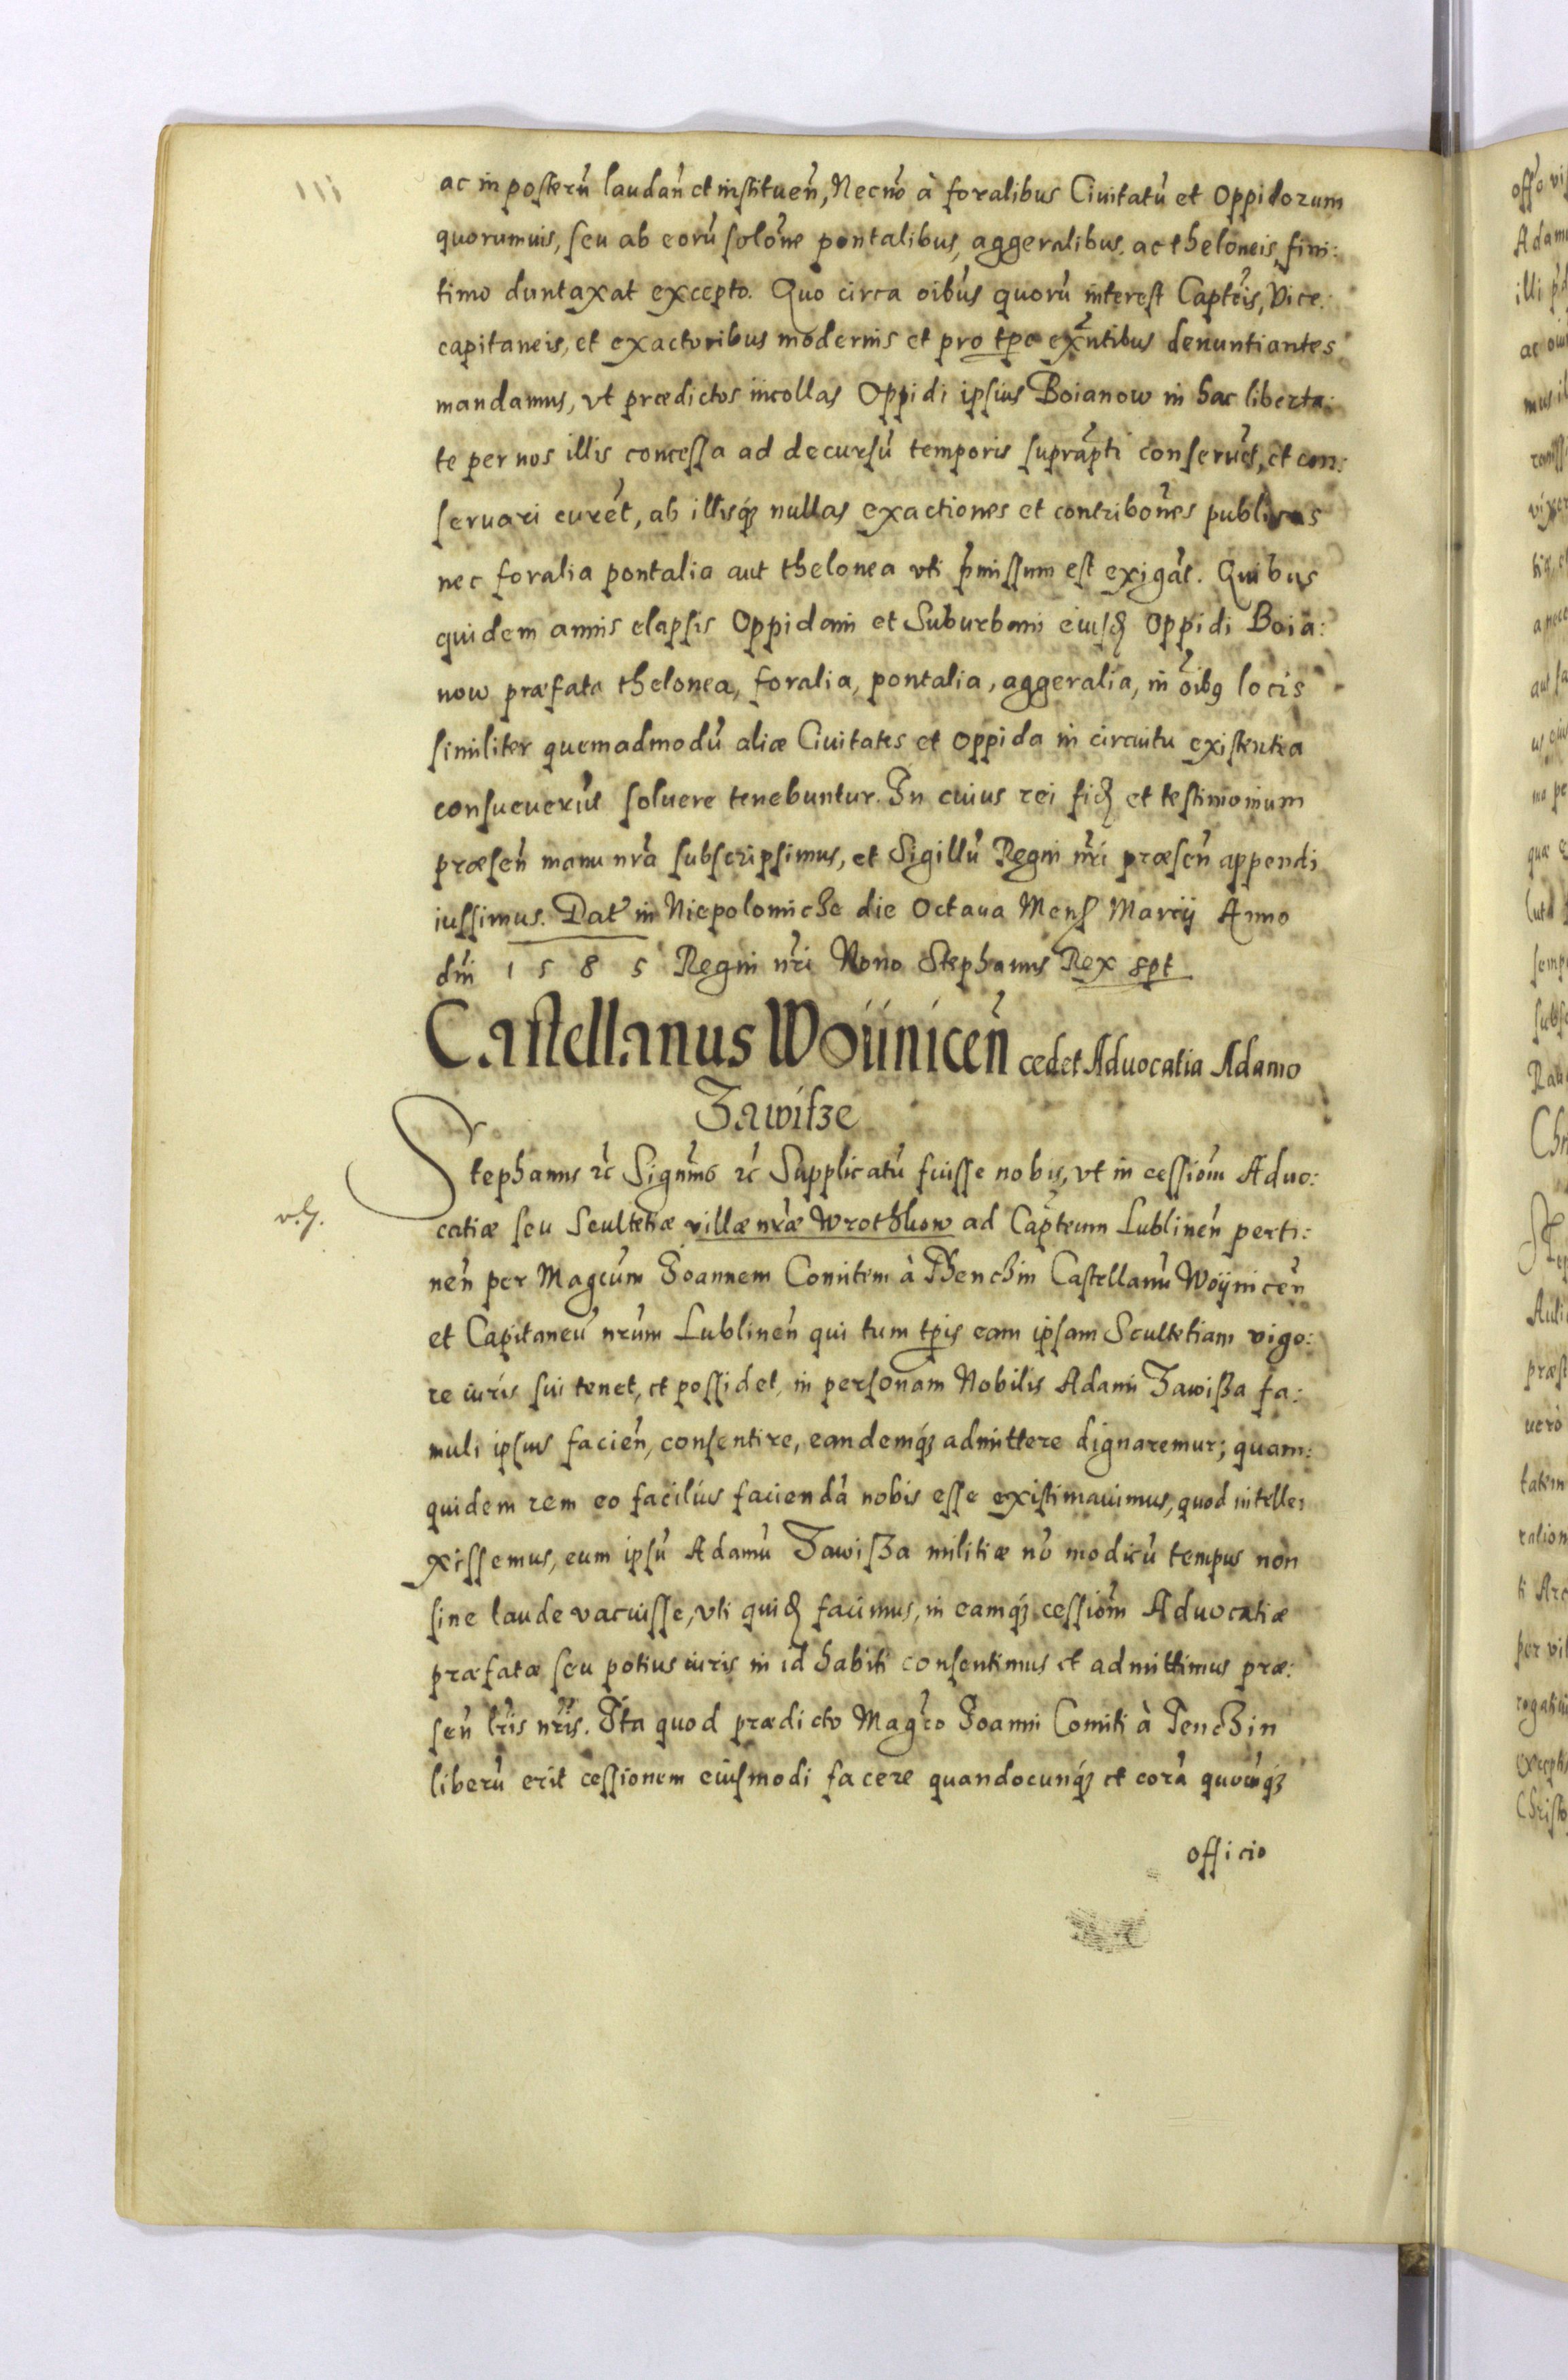 ac in posterũ laudañ et instituen̄, Necnõ à foralibus Ciuitatũ et Oppidorum
quorumuis, seu ab eorũ solõne pontalibus, aggeralibus. ac theloneis, fini:
timo duntaxat excepto. Quo circa oĩbus quorũ interest Captẽis, Vice:
capitaneis, et exactoribus modernis et pro tp̃e exñtibus denuntiantes
mandamus, vt prædictos incollas Oppidi ipsius Boianow in hac liberta:
te per nos illis concessa ad decursũ temporis suprap̃ti conseruẽt, et con:
seruari curẽt, ab illisq3 nullas exactiones et contribõnes publicas
nec foralia pontalia aut thelonea vti p̃missum est exigãt. Quibus
quidem annis elapsis Oppidani et Suburbani eiusđ Oppidi Boia:
now præfata thelonea, foralia, pontalia, aggeralia, in õibꝰ locis
similiter quemadmodũ aliæ Ciuitates et Oppida in circuitu existentia
consueuerũt soluere tenebuntur. In cuius rei fiđ et testimonium
præsen̄ manu nrã subscripsimus, et Sigillũ Regni nrĩ præsen̄ appendi
iussimus. Dat̃ in Niepolomicze die Octaua Mens̃ Marcij Anno
dñi 1585 Regni nrĩ Nono Stephanus Rex sp̃t
Castellanus Woijnicen̄ cedet Aduocatia Adamo
Zawisze
Stephanus ꝛc̃ Signm̃s ꝛc̃ Supplicatũ fuisse nobis, vt in cessiom̃ Aduo:
catiæ seu Scultetiæ villæ nræ̃ Wrothkow ad Capteum̃ Lublinen̄ perti:
nen̄ per Magcũm Joannem Comitem à Thenchin Castellanũ Woijnicen̄
et Capitaneũ nrũm Lublinen̄ qui tum tp̃is eam ipsam Scultetiam vigo:
re iuris sui tenet, et possidet, in personam Nobilis Adami Zawißa fa:
muli ipsius facien̄, consentire, eandemq3 admittere dignaremur; quam:
quidem rem eo facilius faciendã nobis esse existimauimus, quod intelle:
xissemus, eum ipsũ Adamũ Zawißa militiæ nõ modicũ tempus non
sine laude vacuisse, vti quiđ facimus, in eamq3 cessiom̃ Aduocatiæ
præfatæ seu potius iuris in id habiti consentimus et admittimus præ:
sen̄ lrĩs nrĩs. Ita quod prædicto Magc̃o Joanni Comiti à Tenczin
liberũ erit cessionem eiusmodi facere quandocunq3 et corã quocũq3
officio